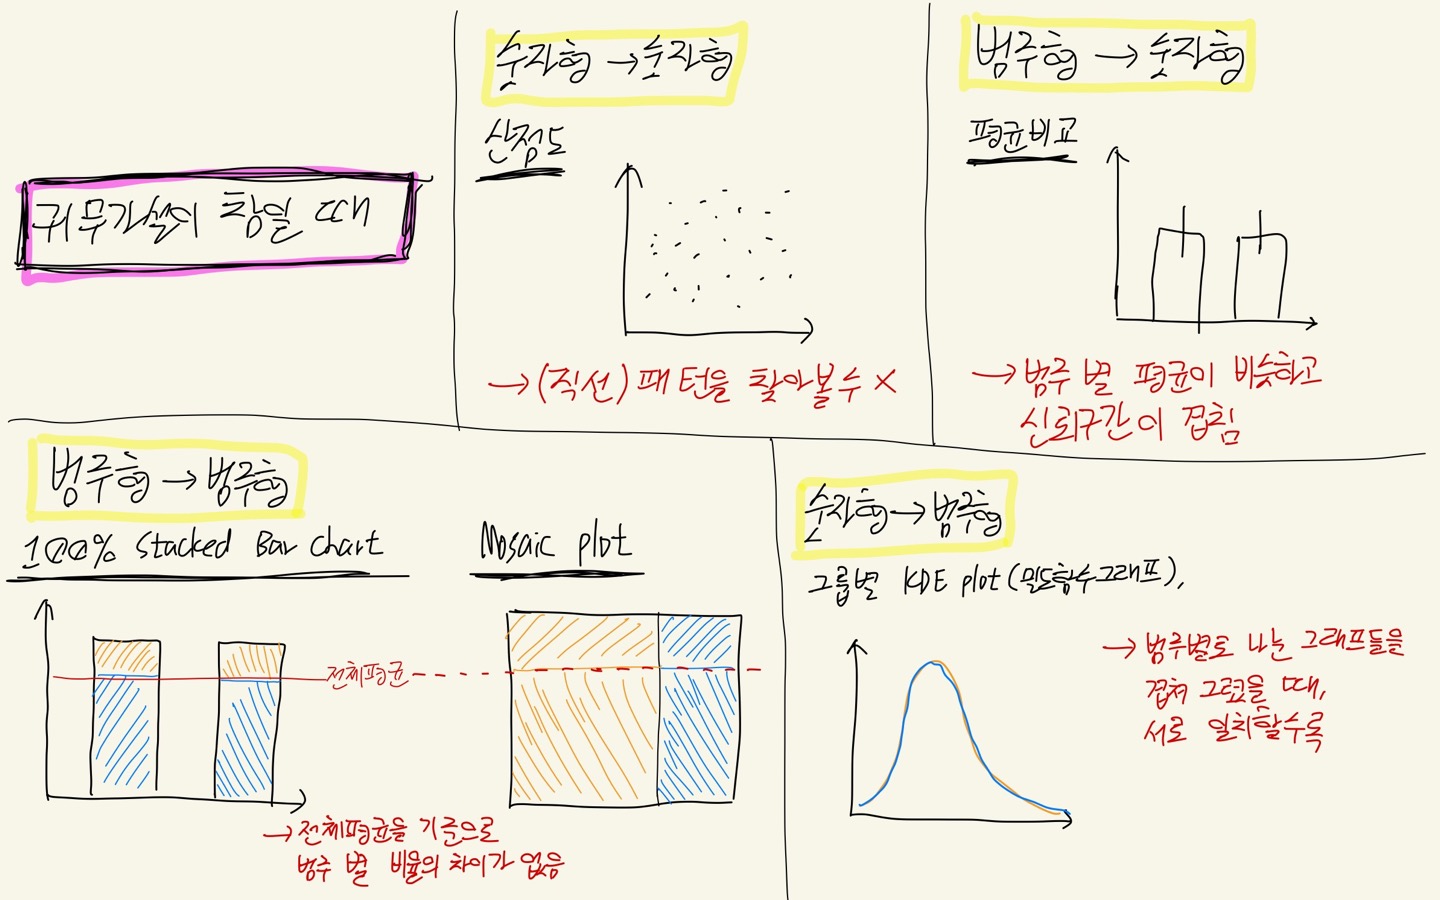 귀무가설이 참일 때
숫자형 → 숫자형
산점도
→ (직선) 패턴을 찾아볼수 X
범주형 → 숫자형
평균비교
→ 범주 별 평균이 비슷하고
신뢰구간이 겹침
범주형 → 범주형
100% Stacked Bar chart
Mosaic plot
전체평균
→ 전체평균을 기준으로
범주 별 비율의 차이가 없음
숫자형 → 범주형
그룹별 KDE plot (밀도함수그래프),
→ 범주별로 나눈 그래프들을
겹쳐 그렸을 때,
서로 일치할수록